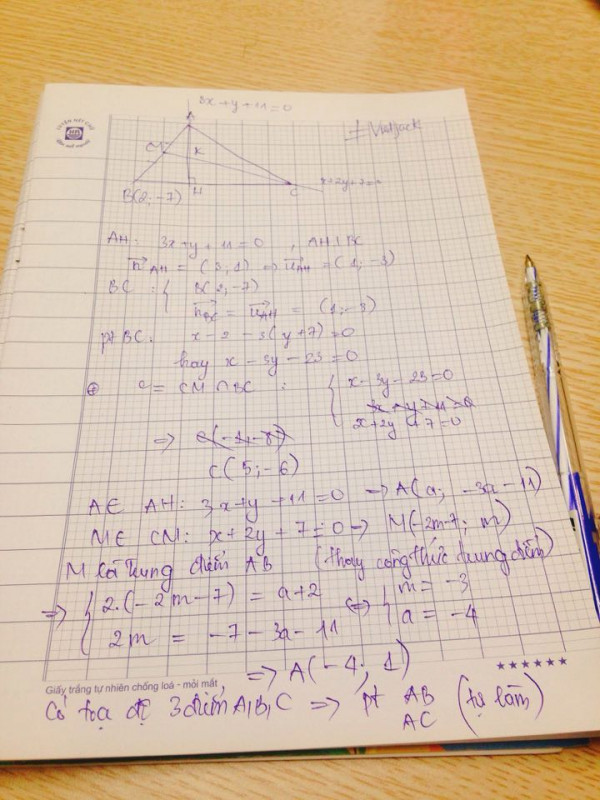 3x + y + 11 = 0
VietJack
A
M
K
B(2; -7)
H
C
x+2y+7=0
AH: 3x+y+11=0 , AH⊥BC
n_AH = (3; 1) ⇒ u_AH = (1; -3)
BC : { B(2; -7)
n_BC = u_AH = (1; -3)
pt BC: x - 2 - 3(y+7) = 0
hay x - 3y - 23 = 0
⊕ C = CM ∩ BC : { x - 3y - 23 = 0
x + 2y + 7 = 0
⇒ C(5; -6)
A ∈ AH: 3x+y+11=0 → A(a; -3a-11)
M ∈ CM: x+2y+7=0 → M(-2m-7; m)
M là trung điểm AB (thay công thức trung điểm)
⇒ { 2.(-2m-7) = a+2 ⇔ { m = -3
2m = -7-3a-11 a = -4
⇒ A(-4; 1)
Giấy trắng tự nhiên chống loá - mỏi mắt
Có toạ độ 3 điểm A,B,C ⇒ pt AB (tự làm)
AC